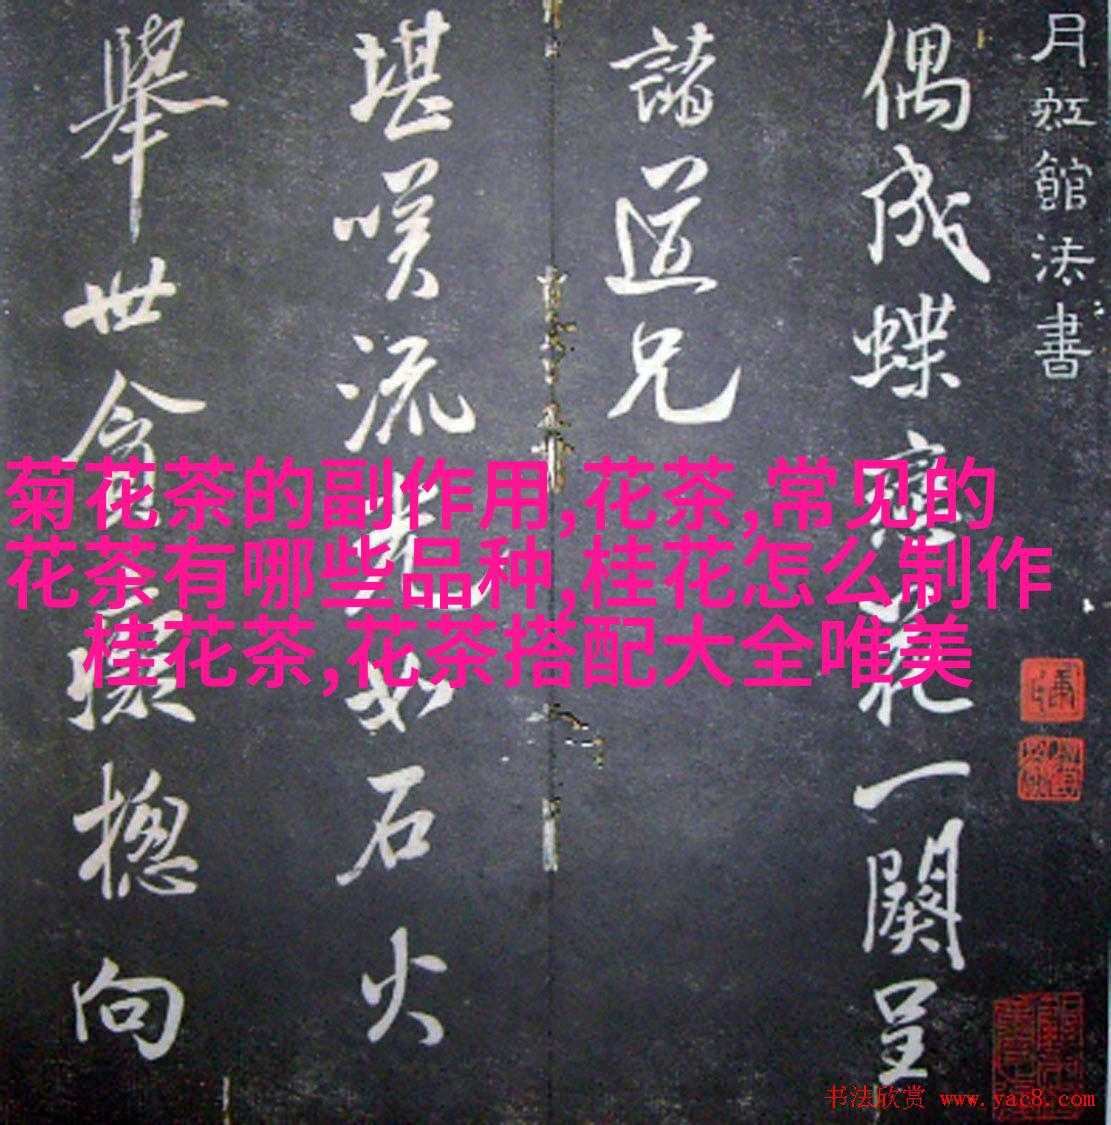 月虹館法書
偶成蝶戀花一闋呈
諸道兄
堪嘆流光如石火
舉世貪癡摠向
菊花茶的副作用,花茶,常见的
花茶有哪些品种,桂花怎么制作
桂花茶,花茶搭配大全唯美
书法欣赏 www.yac8.com